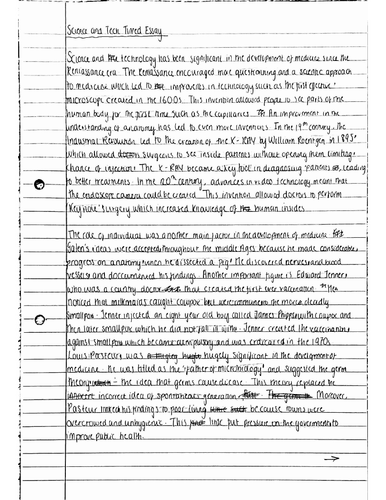 Science and Tech Timed Essay
Science and technology has been significant in the development of medicine since the
Renaissance era. The Renaissance encouraged more questioning and a scientific approach
to medicine which led to improvements in technology such as the first effective
microscope created in the 1600s. This invention allowed people to see parts of the
human body for the first time such as the capillaries. An improvement in the
understanding of anatomy has led to even more inventions. In the 19th century, the
Industrial Revolution led to the creation of the X-RAY by William Roentgen in 1895
which allowed surgeons to see inside patients without opening them limiting
chance of infection. The X-RAY became a key tool in diagnosing patients leading
to better treatments. In the 20th century, advances in video technology meant that
the endoscope camera could be created. This invention allowed doctors to perform
'Keyhole' surgery which increased knowledge of human insides.
The role of individual was another main factor in the development of medicine
Galen's ideas were accepted throughout the middle Ages because he made considerable
progress on anatomy when he dissected a pig. He discovered nerves and blood
vessels and documented his findings. Another important figure is Edward Jenner
who was a country doctor that created the first ever vaccination. He
noticed that milkmaids caught cowpox but were immune to the more deadly
smallpox. Jenner injected an eight year old boy called James Phipps with cowpox and
then later smallpox which he did not fall ill with. Jenner created the vaccination
against smallpox which became compulsory and was eradicated in the 1970s.
Louis Pasteur was hugely significant in the development of
medicine. He was titled as the 'father of microbiology' and suggested the germ
theory - the idea that germs cause disease. This theory replaced the
incorrect idea of spontaneous generation. Moreover,
Pasteur linked his findings to poor living because towns were
overcrowded and unhygienic. This link put pressure on the government to
improve public health.